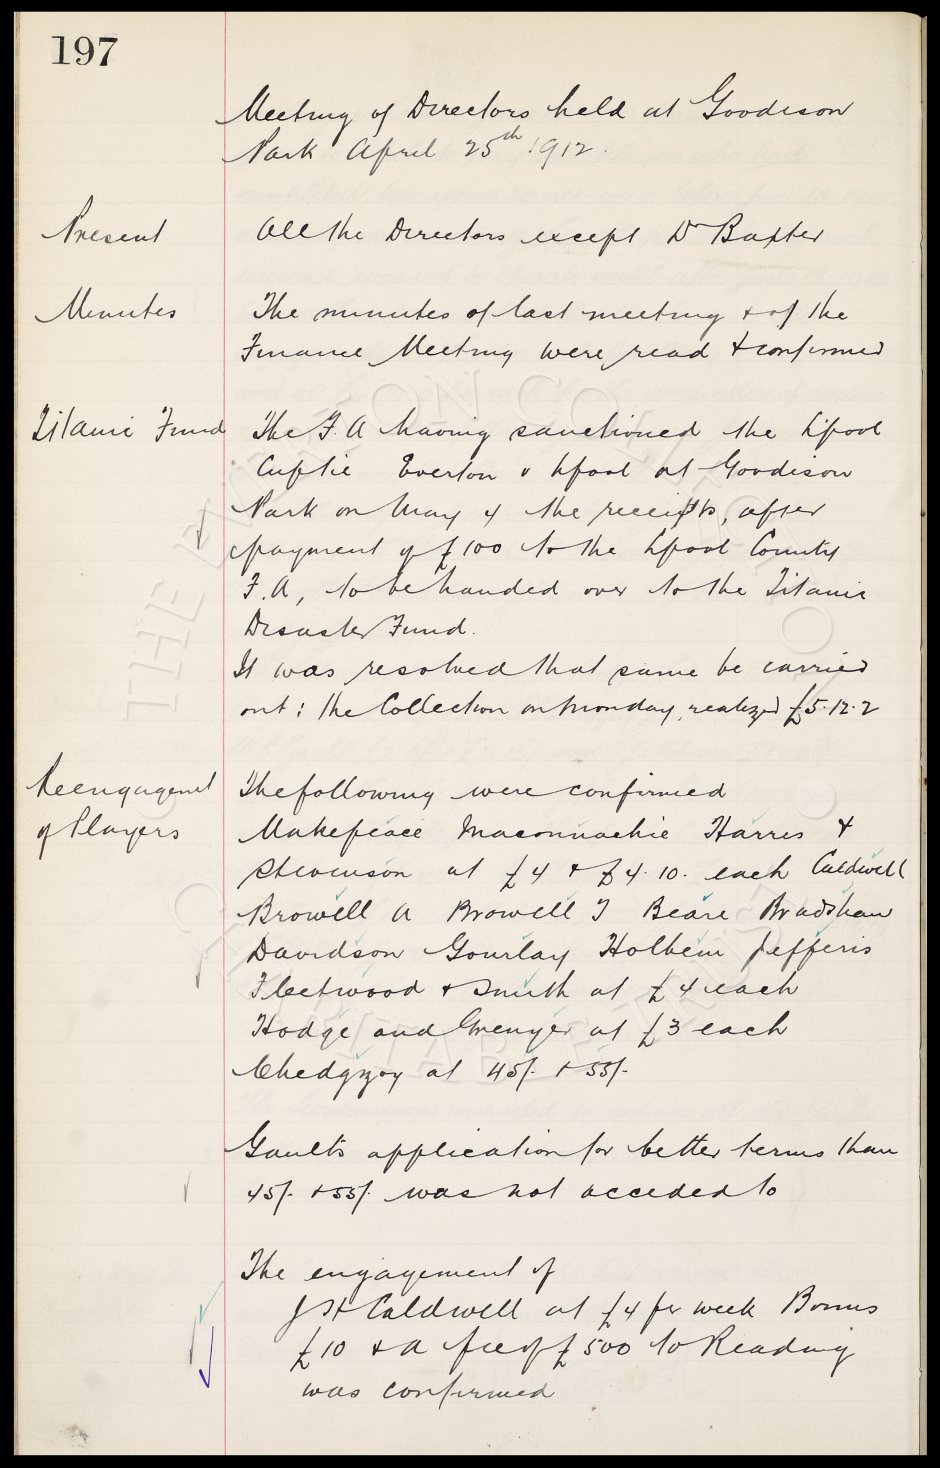 197
Meeting of Directors held at Goodison
Park April 25th 1912.
Present
All the Directors except Dr Baxter
Minutes
The minutes of last meeting & of the
Finance Meeting were read & confirmed
Titanic Fund
The F.A having sanctioned the L'pool
Cuptie Everton v L'pool at Goodison
Park on May 4 the receipts, after
payment of £100 to the L'pool County
F.A, to be handed over to the Titanic
Disaster Fund.
It was resolved that same be carried
out: the Collection on Monday, realized £5.12.2
Reengagement
of Players
The following were confirmed
Makepeace Maconnachie Harris &
Stevenson at £4 & £4.10. each Caldwell
Browell A Browell T Beare Bradshaw
Davidson Gourlay Holbem Jefferis
Fleetwood & Smith at £4 each
Hodge and Grenyer at £3 each
Chedgzoy at 45/- & 55/-
Gaults application for better terms than
45/- & 55/- was not acceded to
The engagement of
J H Caldwell at £4 per week Bonus
£10 & a fee of £500 to Reading
was confirmed